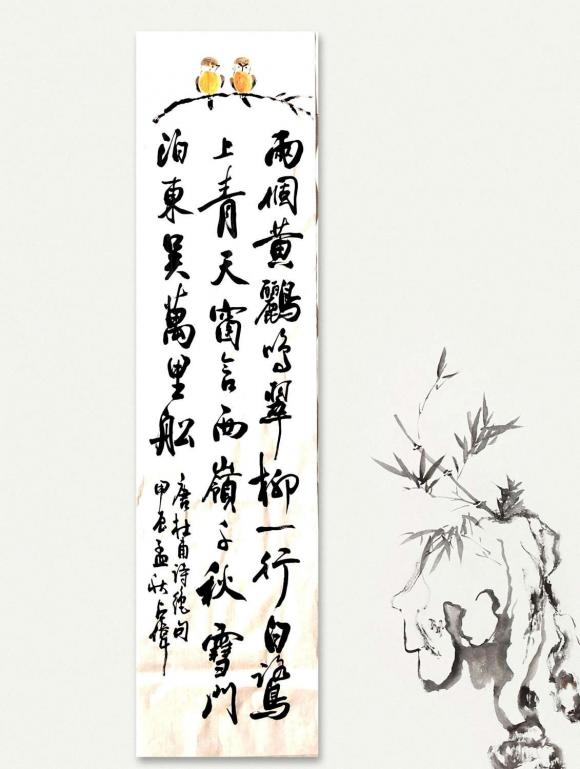 兩個黃鸝鳴翠柳一行白鷺
上青天窗含西嶺千秋雪門
泊東吳萬里船
唐杜甫詩絕句
甲辰孟秋